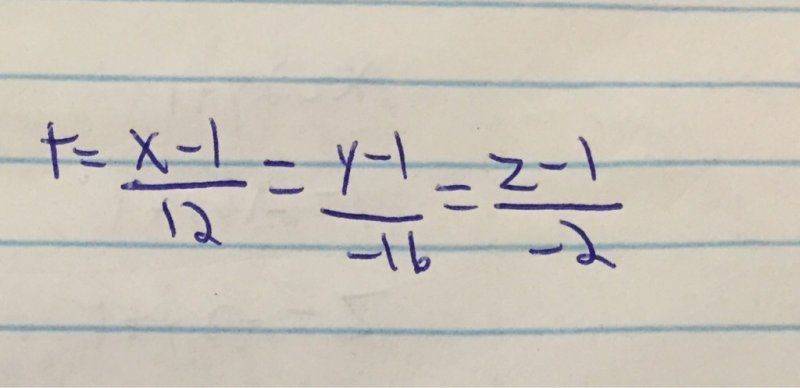 t = x-1/12 = y-1/-16 = z-1/-2